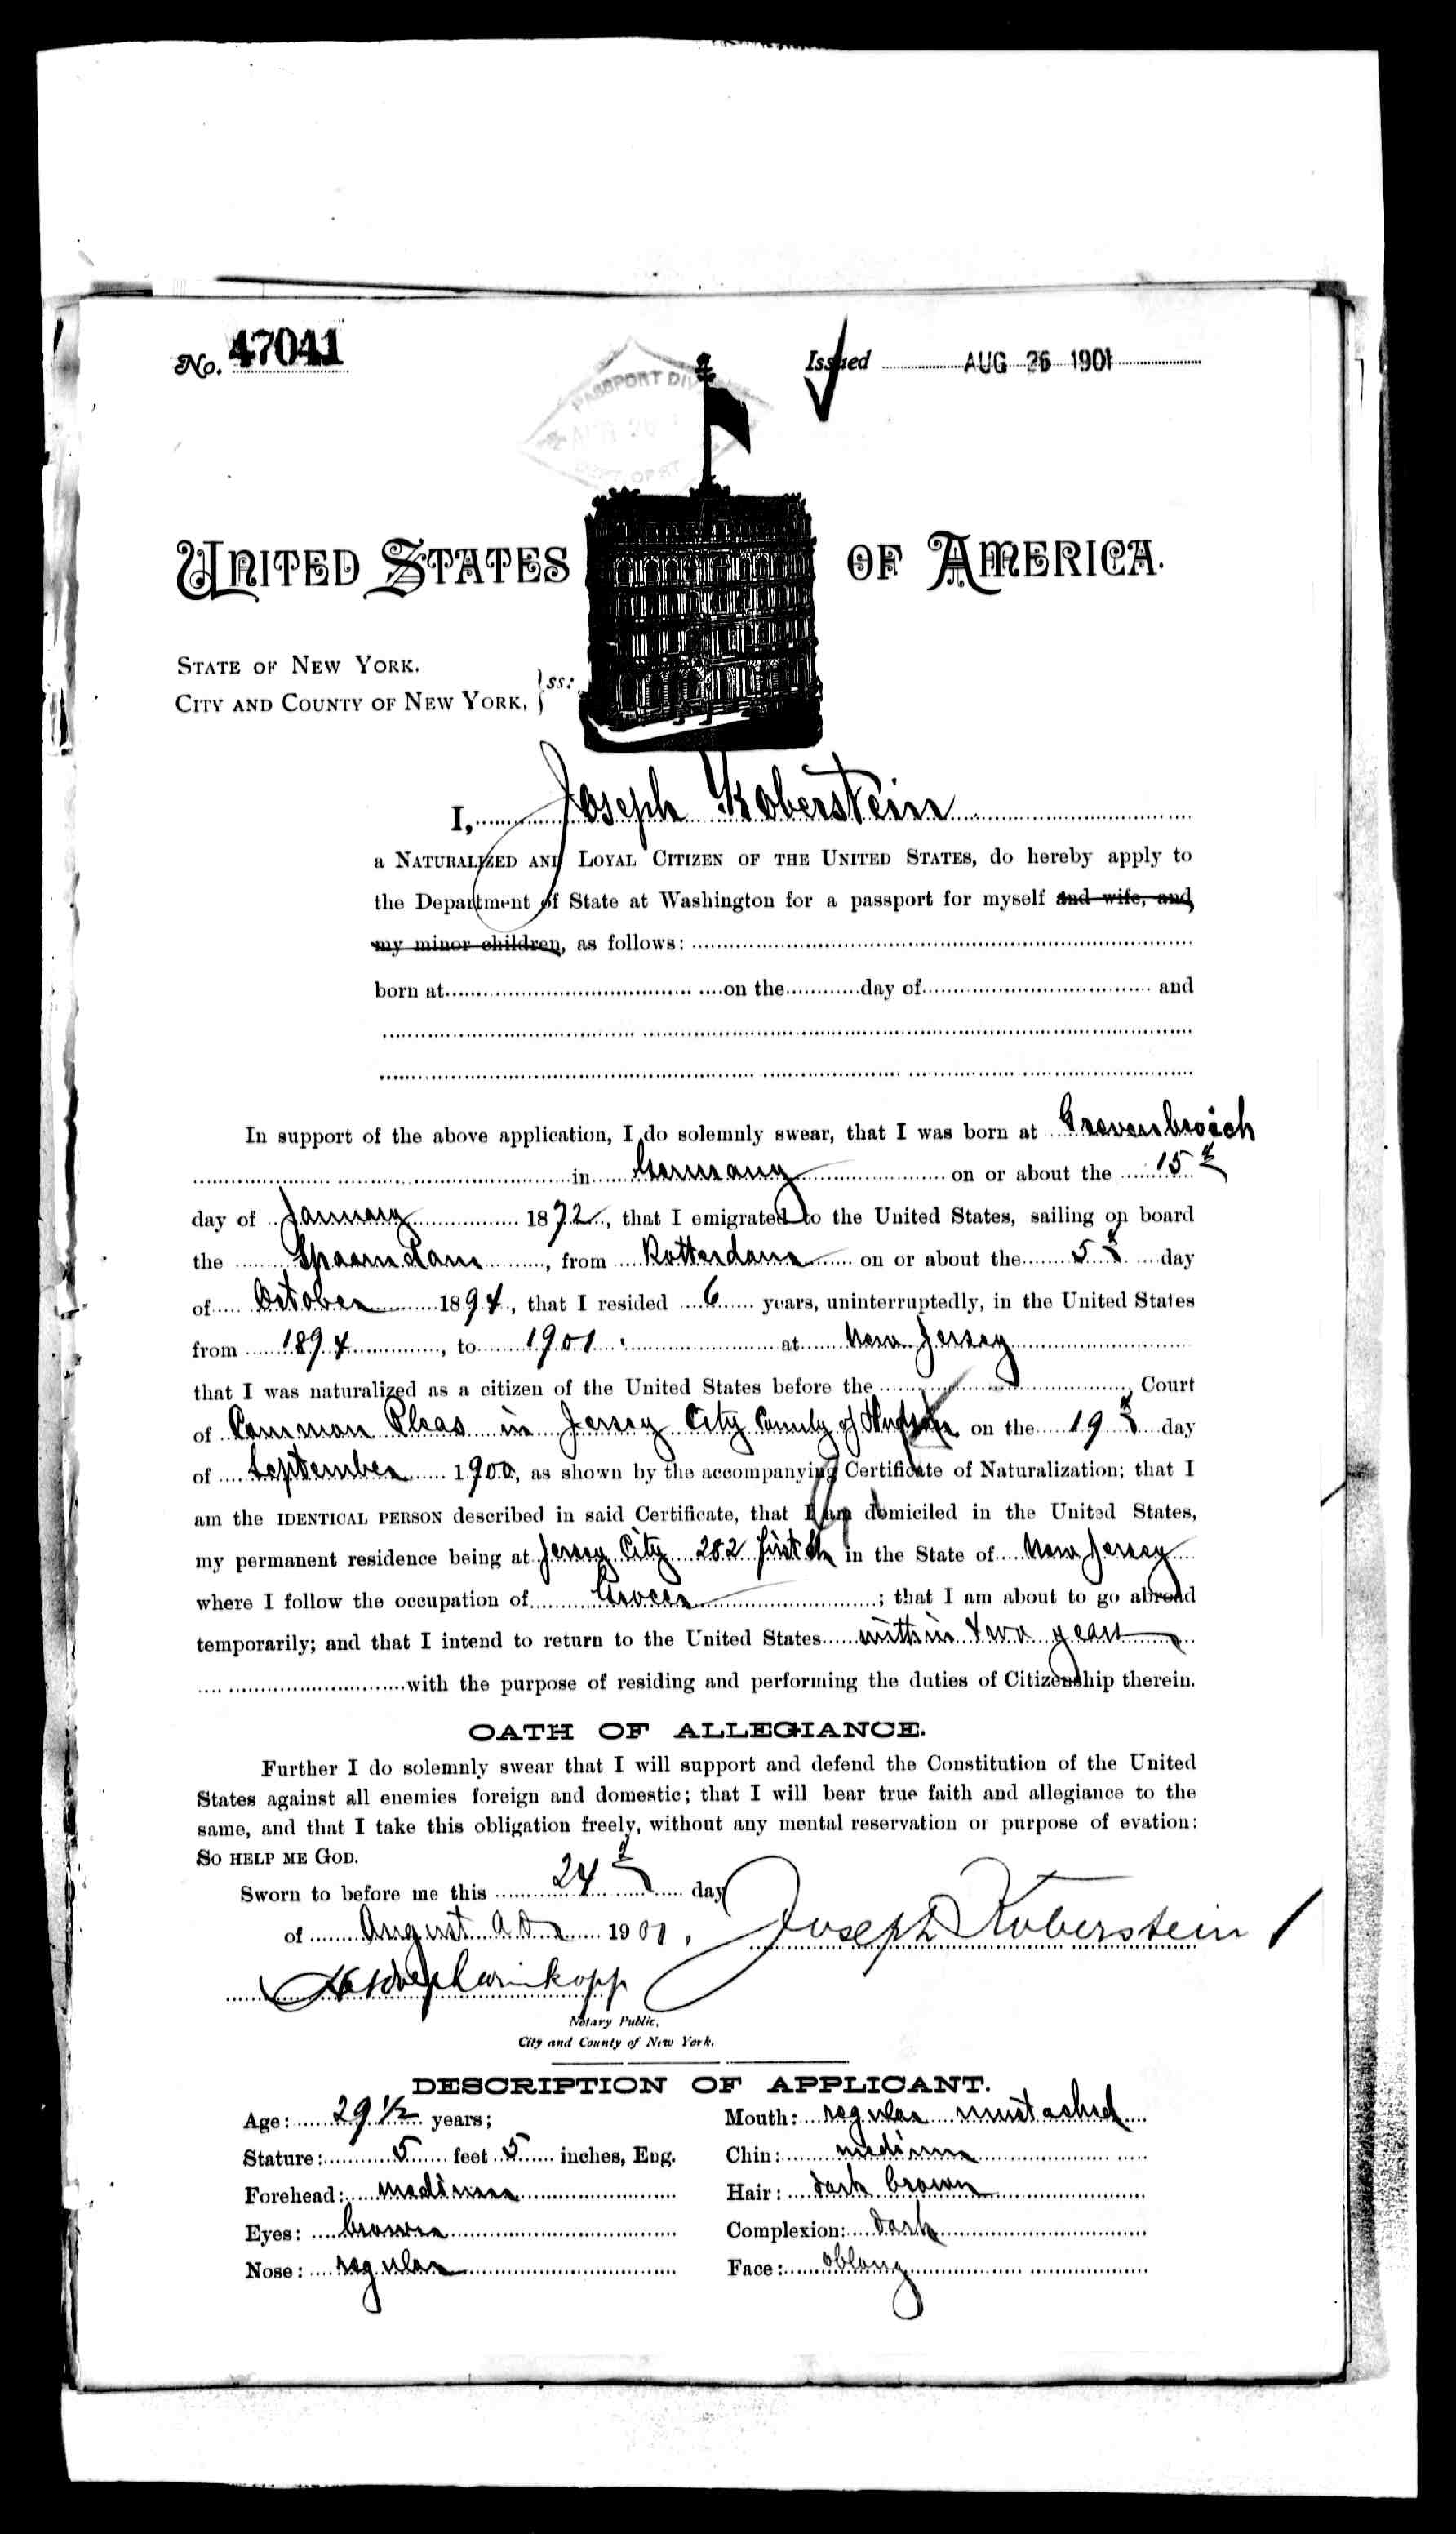 No. 47041
Issued AUG 26 1901
PASSPORT DIV
UNITED STATES OF AMERICA.
STATE OF NEW YORK.
CITY AND COUNTY OF NEW YORK, } ss:
I, Joseph Koberstein
a NATURALIZED AND LOYAL CITIZEN OF THE UNITED STATES, do hereby apply to
the Department of State at Washington for a passport for myself and wife, and
my minor children, as follows:
born at on the day of and
In support of the above application, I do solemnly swear, that I was born at Grevenbroich
in Germany on or about the 15th
day of January 1872, that I emigrated to the United States, sailing on board
the Spaarndam, from Rotterdam on or about the 5th day
of October 1894, that I resided 6 years, uninterruptedly, in the United States
from 1894, to 1901 at New Jersey
that I was naturalized as a citizen of the United States before the Court
of Common Pleas in Jersey City County of Hudson on the 19th day
of September 1900, as shown by the accompanying Certificate of Naturalization; that I
am the IDENTICAL PERSON described in said Certificate, that I am domiciled in the United States,
my permanent residence being at Jersey City 282 first st in the State of New Jersey
where I follow the occupation of Grocer; that I am about to go abroad
temporarily; and that I intend to return to the United States within two years
with the purpose of residing and performing the duties of Citizenship therein.
OATH OF ALLEGIANCE.
Further I do solemnly swear that I will support and defend the Constitution of the United
States against all enemies foreign and domestic; that I will bear true faith and allegiance to the
same, and that I take this obligation freely, without any mental reservation or purpose of evation:
SO HELP ME GOD.
Sworn to before me this 24th day
of August A D 1901, Joseph Koberstein
Notary Public,
City and County of New York.
DESCRIPTION OF APPLICANT.
Age: 29 1/2 years; Mouth: regular mustached
Stature: 5 feet 5 inches, Eng. Chin: medium
Forehead: medium Hair: dark brown
Eyes: brown Complexion: dark
Nose: regular Face: oblong